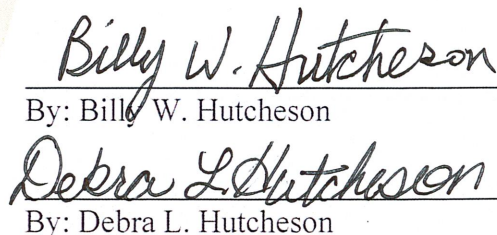 Billy W. Hutcheson
By: Billy W. Hutcheson
Debra L. Hutcheson
By: Debra L. Hutcheson